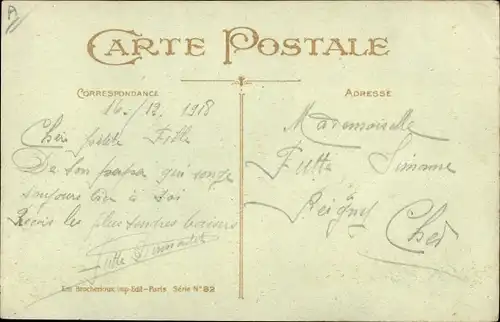 A
CARTE POSTALE
CORRESPONDANCE
16-/12. 1918
Cher petite Fille
De ton papa qui songe
toujours bien à toi
Reçois les plus tendres baisers
Futte
Em. Boucherioux, Imp-Edit-Paris Série Nº 82
ADRESSE
Mademoiselle
Futte Simone
à
Reigny
Cher